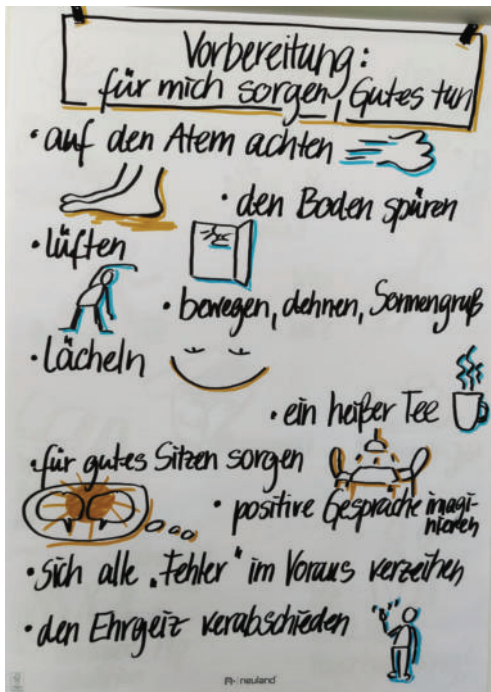 Vorbereitung:
für mich sorgen, Gutes tun
• auf den Atem achten
• den Boden spüren
• lüften
• bewegen, dehnen, Sonnengruß
• Lächeln
• ein heißer Tee
• für gutes Sitzen sorgen
• positive Gespräche imagi-
nieren
• sich alle „Fehler“ im Voraus verzeihen
• den Ehrgeiz verabschieden
neuland